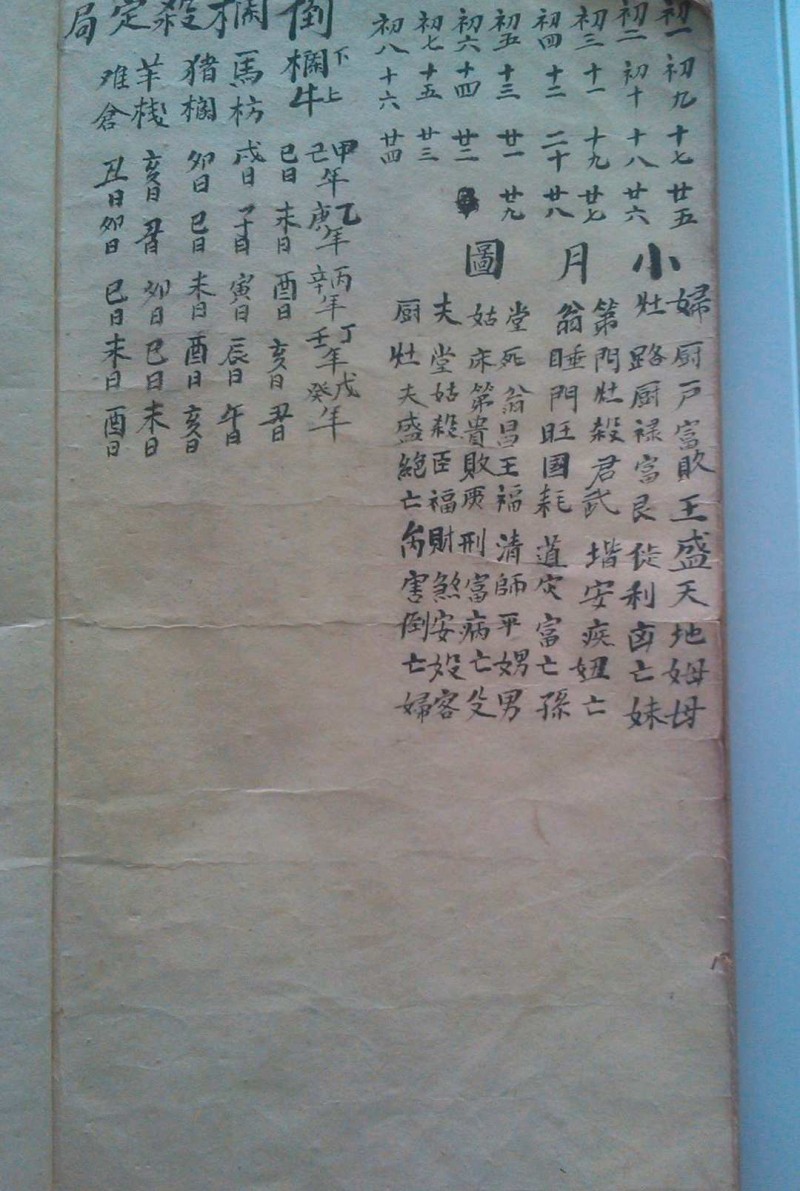 初一 初九 十七 廿五
初二 初十 十八 廿六
初三 十一 十九 廿七
初四 十二 二十 廿八
初五 十三 廿一 廿九
初六 十四 廿二
初七 十五 廿三
初八 十六 廿四
小月圖
婦厨戸富敗王盛天地姆母
灶路厨禄富良徒利 亡妹
第門灶殺君武堦安疾妞亡
翁睡門旺国耗道灾富亡孫
堂死翁昌王福清師平娚男
姑床第貴敗 刑富病亡殳
夫堂姑殺臣福財煞安 客
厨灶夫盛絕亡 害倒亡婦
倒欄殺定局
下上
欄牛
甲己年 乙庚年 丙辛年 丁壬年 戊癸年
巳日 未日 酉日 亥日 丑日
馬枋 戌日 子日 寅日 辰日 午日
猪欄 卯日 巳日 未日 酉日 亥日
羊棧 亥日 丑日 卯日 巳日 未日
难倉 丑日 卯日 巳日 未日 酉日